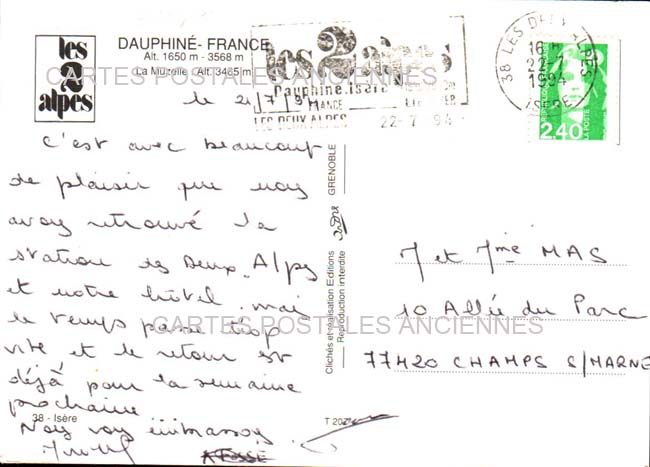 les
2
alpes
DAUPHINÉ - FRANCE
Alt. 1650 m - 3568 m
La Muzelle Alt. 3485 m
les 2 alpes
Dauphiné.Isère
FRANCE
LES DEUX ALPES
22-7 94
38 LES DEUX ALPES
16 H
22-7
1994
ISERE
2,40
LA POSTE
CARTES POSTALES ANCIENNES
le 21/7/94
C'est avec beaucoup
de plaisir que nous
avons retrouvé la
station des Deux Alpes
et notre hôtel. mais
le temps passe trop
vite et le retour est
déjà pour la semaine
prochaine
Nous vous embrassons
38 - Isère
Clichés et réalisation Editions GRENOBLE
Reproduction interdite
T 202
M et Mme MAS
10 Allée du Parc
77420 CHAMPS S/MARNE
CARTES POSTALES ANCIENNES